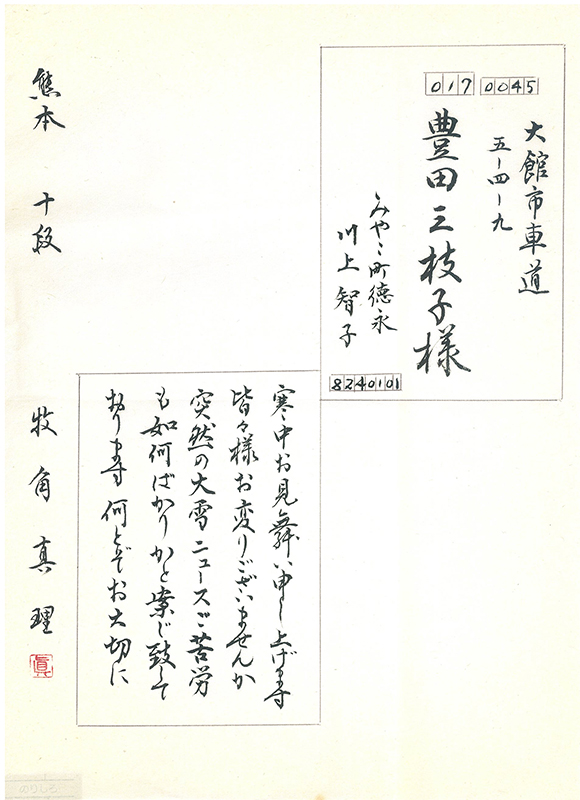 017 0045
大館市車道
五ー四ー九
豊田三枝子様
みやこ町徳永
川上智子
8240101
寒中お見舞い申し上げます
皆々様お変りございませんか
突然の大雪ニュースご苦労
も如何ばかりかと案じ致して
おります何とぞお大切に
熊本 十段 牧角真理
眞
のりしろ